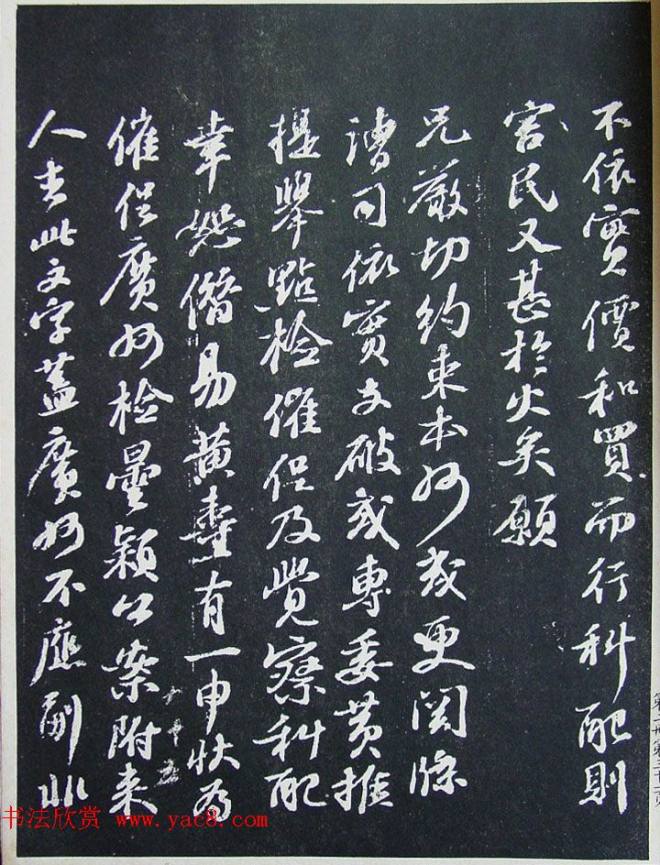 不依實價和買而行科配則
害民又甚於火矣願
兄嚴切約束本州或更関牒
漕司依實支破或專委黃推
提舉點檢催促及覺察科配
幸恕僭易黃燾有一申狀為
催促廣州檢曇穎公案附来
人去此文字蓋廣州不應副
书法欣赏 www.yac8.com